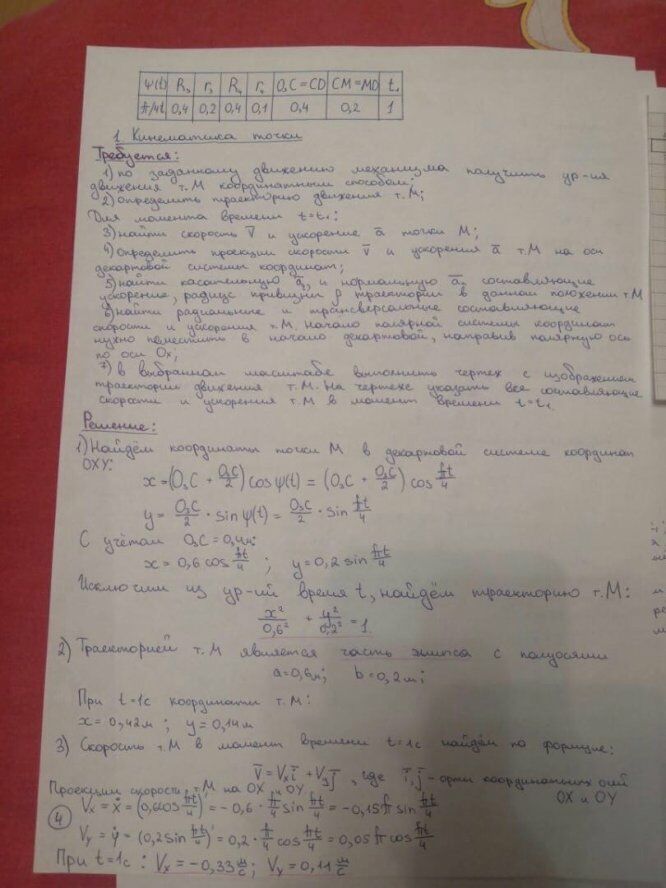 ψ(t) R₃ r₃ R₄ r₄ O₃C=CD CM=MD t₁
π/4t 0,4 0,2 0,4 0,1 0,4 0,2 1
1. Кинематика точки
Требуется:
1) по заданному движению механизма получить ур-ия
движения т.М координатным способом;
2) определить траекторию движения т.М;
Для момента времени t=t₁:
3) найти скорость V̅ и ускорение a̅ точки М;
4) определить проекции скорости v̅ и ускорения a̅ т.М на оси
декартовой системы координат;
5) найти касательную и нормальную составляющие
ускорение, радиус кривизны ρ траектории в данном положении т.М
6) найти радиальные и трансверсальные составляющие
скорости и ускорения т.М. Начало полярной системы координат
нужно поместить в начало декартовой, направив полярную ось
по оси Ox;
7) в выбранном масштабе выполнить чертеж с изображением
траектории движения т.М. На чертеже указать все составляющие
скорости и ускорения т.М в момент времени t=t₁.
Решение:
1) Найдём координаты точки М в декартовой системе координат
OXY:
x=(O₃C + O₃C/2) cos ψ(t) = (O₃C + O₃C/2) cos πt/4
y = O₃C/2 · sin ψ(t) = O₃C/2 · sin πt/4
С учётом O₃C=0,4м:
x = 0,6 cos πt/4 ; y = 0,2 sin πt/4
Исключим из ур-ий время t, найдём траекторию т.М:
x²/0,6² + y²/0,2² = 1
2) Траекторией т.М является часть эллипса с полуосями
a=0,6м; b=0,2м;
При t=1с координаты т.М:
x=0,42м ; y=0,14м
3) Скорость т.М в момент времени t=1с найдём по формуле:
V̅ = Vₓi̅ + Vyj̅, где i̅, j̅ - орты координатных осей
OX и OY
Проекции скорости т.М на OX и OY
Vₓ = ẋ = (0,6cos πt/4)' = -0,6 · π/4 sin πt/4 = -0,15π sin πt/4
Vy = ẏ = (0,2sin πt/4)' = 0,2 · π/4 cos πt/4 = 0,05π cos πt/4
4
При t=1с : Vₓ = -0,33 м/с; Vy = 0,11 м/с